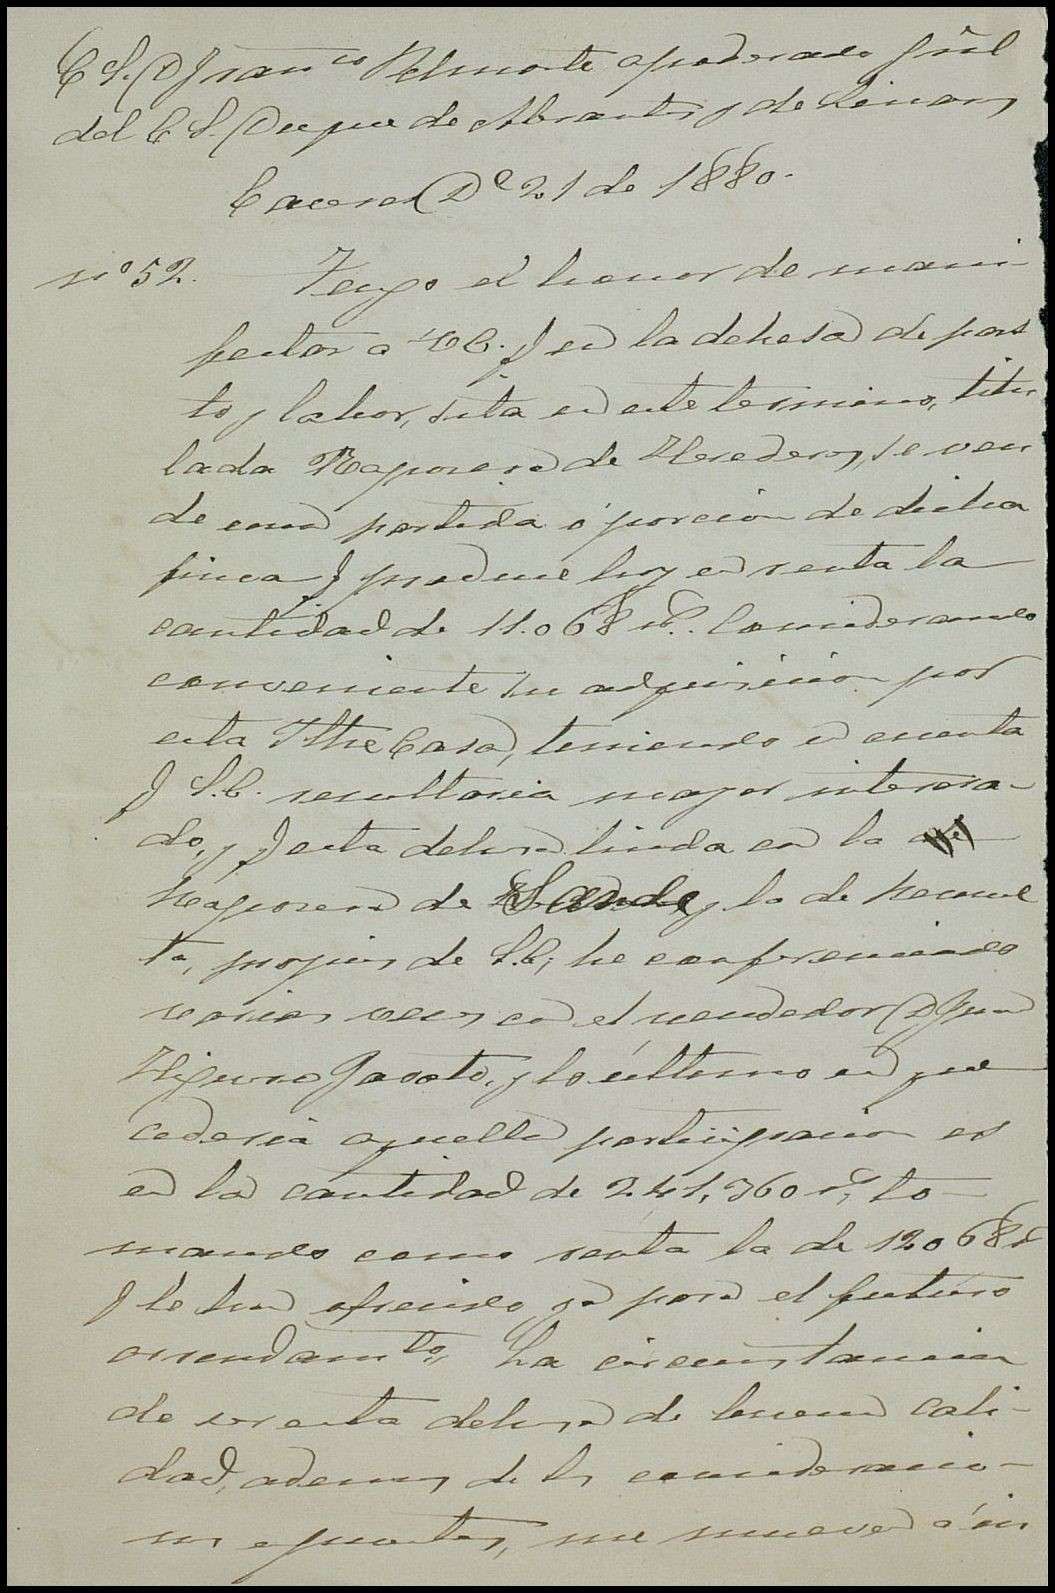 E S. D Franco Belmonte apoderado gñl
del E S. Duque de Abrantes y de Linares
Caceres De 21 de 1880.
nº 52. Tengo el honor de mani-
festar a VE. q en la dehesa de pas
to y labor, sita en este termino, titu
lada Raposera de Herederos, se ven
de una partida ó porcion de dicha
finca q produce hoy en renta la
cantidad de 11.068 rs. Considerando
conveniente su adquisicion por
esta Iltre Casa, teniendo en cuenta
q S.E. resultaria mayor interesa-
do, y q esta dehesa linda con la
Raposera de Sande y la de
ta, propias de S.E; he conferenciado
varias veces con el vendedor D Juan
Higuero y lo último en que
cederia aquella participacion es
en la cantidad de 241,360 rs, to-
mando como renta la de 12068 rs
q le han ofrecido ya para el futuro
arrendamto. La circunstancia
de ser esta dehesa de buena cali-
dad, ademas de las consideracio-
nes apuntadas, me mueven á in